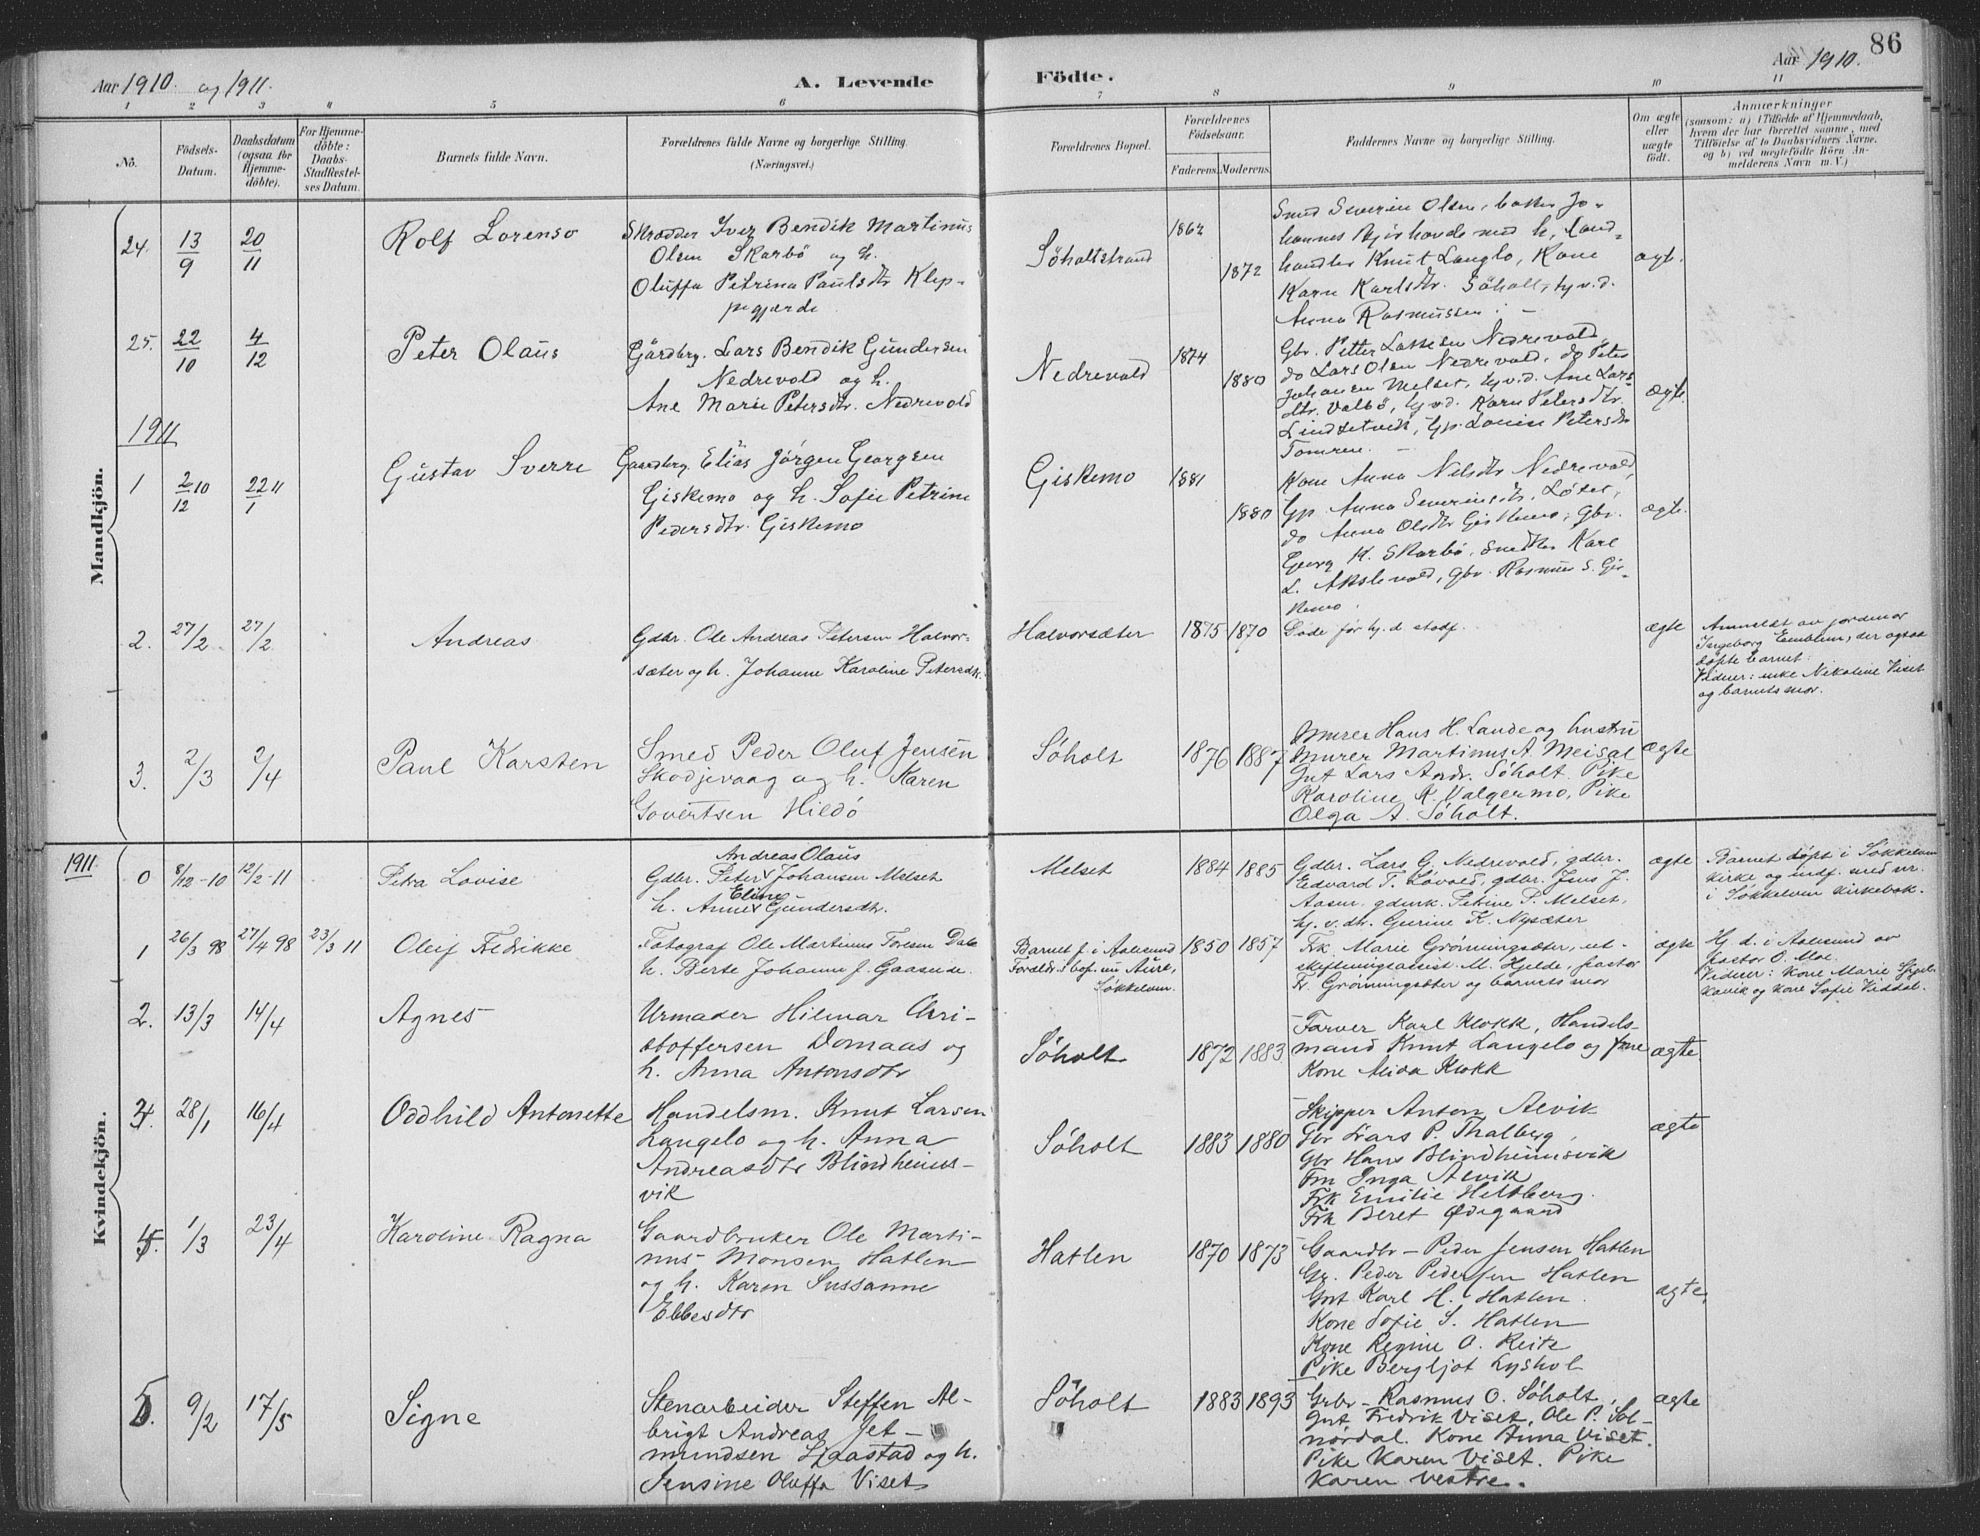 86
Aar 1910. og 1911.
A. Levende Födte.
Aar 1910.
1 2 3 4 5 6 7 8 9 10 11
No.
Födsels-Datum.
Daabsdatum (ogsaa for Hjemme-döbte).
For Hjemme-döbte: Daabs-Stadfæstel-ses Datum.
Barnets fulde Navn.
Forældrenes fulde Navne og borgerlige Stilling. (Næringsvei.)
Forældrenes Bopæl.
Forældrenes Födselsaar.
Faderens. Moderens.
Faddernes Navne og borgerlige Stilling.
Om ægte eller uægte födt.
Anmærkninger (saasom: a) i Tilfælde af Hjemmedaab, hvem der har forrettet samme, med Tilföielse af to Daabsvidners Navne, og b) ved uægtefödte Börn An-melderens Navn m. V.)
Mandkjön.
24. 13/9 20/11 Rolf Lorenso
Skrædder Iver Bendik Martinus
Olsen Skarbö og h.
Oluffa Petrina Paulsdtr Klep-
pegjærde
Söholtstrand 1862 1872
Smed Severin Olsen, Jo-
hannes med h, Land-
handler Knut Langlo, Kone
Karn Karlsdtr. Söholt, ty v.d.
Anna Rasmussen.
ægt.
25. 22/10 4/12 Peter Olaüs
Gårdbrg. Lars Bendik Gündersen
Nedrevold og h.
Ane Marie Petersdtr. Nedrevold
Nedrevold 1874 1880
Gbr. Petter Larsen Nedrevold,
do Lars Olsen Nedrevold, do Peter
Johansen Melset, ty v.d. Ane Lars-
dtr. Valbö, ty v.d. Karn Petersdtr.
Lindsetvik, Gp. Lovise Petersdtr
Tomren.
ægte.
1911
1 2/12 10 22/1 11 Gustav Sverre
Gaardbrg. Elias Jørgen Georgsen
Giskemo og h. Sofie Petrine
Pedersdtr. Giskemo
Giskemo 1881 1880
Kone Anna Nelsdtr Nedrevold,
Gp Anna Severinsdtr. Løset,
do Anna Olsdtr Giskemo, Gbr.
Georg K. Skarbö, Karl
L. gbr. Rasmus S. Gis-
kemo.
ægte.
2. 27/2 27/2 Andreas
Gdbr. Ole Andreas Petersen Halvor-
sæter og h. Johanne Karoline Petersdtr.
Halvorsæter 1875 1870
Døde før hj.d. stadf.
ægte
Anmeldt av jordmor
Ingeborg Emblem, der ogsaa
døpte barnet.
Vidner: enke Nikoline Viset
og barnets mor.
3. 2/3 2/4 Paul Karsten
Smed Peder Oluf Jensen
Skodjevaag og h. Karen
Govertsen Hildø
Søholt 1876 1887
Murer Hans H. Lande og hustru
Murer Martinus A. Meisal
Gut Lars Andr. Søholt. Pike
Karoline K. Valgermo, Pike
Olga A. Søholt.
ægte
Kvindekjön.
1911
0 8/12-10 12/2-11 Petra Lovise
Andreas Olaus
Gdbr. Peter Johansen Melset
Eline
h. Anne Gündersdtr.
Melset 1884 1885
Gdbr. Lars G. Nedrevold, gdbr.
Edvard T. Løvold, gdbr. Jens J.
Aasen, gdmk. Petrine P. Melset,
hj. v. dtr. Gurine K. Nysæter
ægte
Barnet døpt i Søkkelven
kirke og indf. med nr.
i Søkkelven kirkebok.
1 26/3 98 27/4 98 23/3 11 Oleif Fredrikke
Fotograf Ole Martinus Toresen Dale
h. Berte Johanne J. Gaasnde.
Barnet f. i Aalesund
Forældr. bof. nu Aure,
Søkkelven.
1850 1857
Frk. Marie Grønningsæter, ut-
skiftningsassist. M. Hjelde, pastor
Fr. Grønningsæter og barnets mor
ægte
Hj. d. i Aalesund av
pastor O. Moe.
Vidner: Kone Marie
og Kone Sofie Viddal.
2. 13/3 14/4 Agnes
Urmager Hilmar Chri-
stoffersen Domaas og
h. Anna Antonsdtr
Søholt 1872 1883
Farver Karl Klokk, Handels-
mand Knut Langelo og frue
Kone Alida Klokk
ægte.
3. 28/1 16/4 Oddhild Antonette
Handelsm. Knut Larsen
Langelo og h. Anna
Andreasdtr Blindheims-
vik
Søholt 1883 1880
Skipper Anton Alvik
Gbr Lars P. Thalberg,
Gbr Hans Blindheimsvik
Fru Inga Alvik
Frk Emilie Heltberg.
Frk Beret Ødegaard
ægte
4. 1/3 23/4 Karoline Ragna
Gaardbruker Ole Marti-
nus Monsen Hatlen
og h. Karen Sussanne
Ebbesdtr
Hatlen 1870 1873
Gaardbr - Peder Jensen Hatlen
Gr. Peder Pedersen Hatlen
Gut Karl H. Hatlen.
Kone Sofie S. Hatlen
Kone Regine O. Reite
Pike Bergljot Lyshol
ægte,
5. 9/2 17/5 Signe
Stenarbeider Steffen Al-
brigt Andreas Jet-
mundsen Ljaastad og h.
Jensine Oluffa Viset
Søholt 1883 1893
Grbr - Rasmus O. Søholt,
Gut Fredrik Viset, Ole P. Sol-
nørdal. Kone Anna Viset.
Pike Karen Viset. Pike
Karen Vestre.
ægte